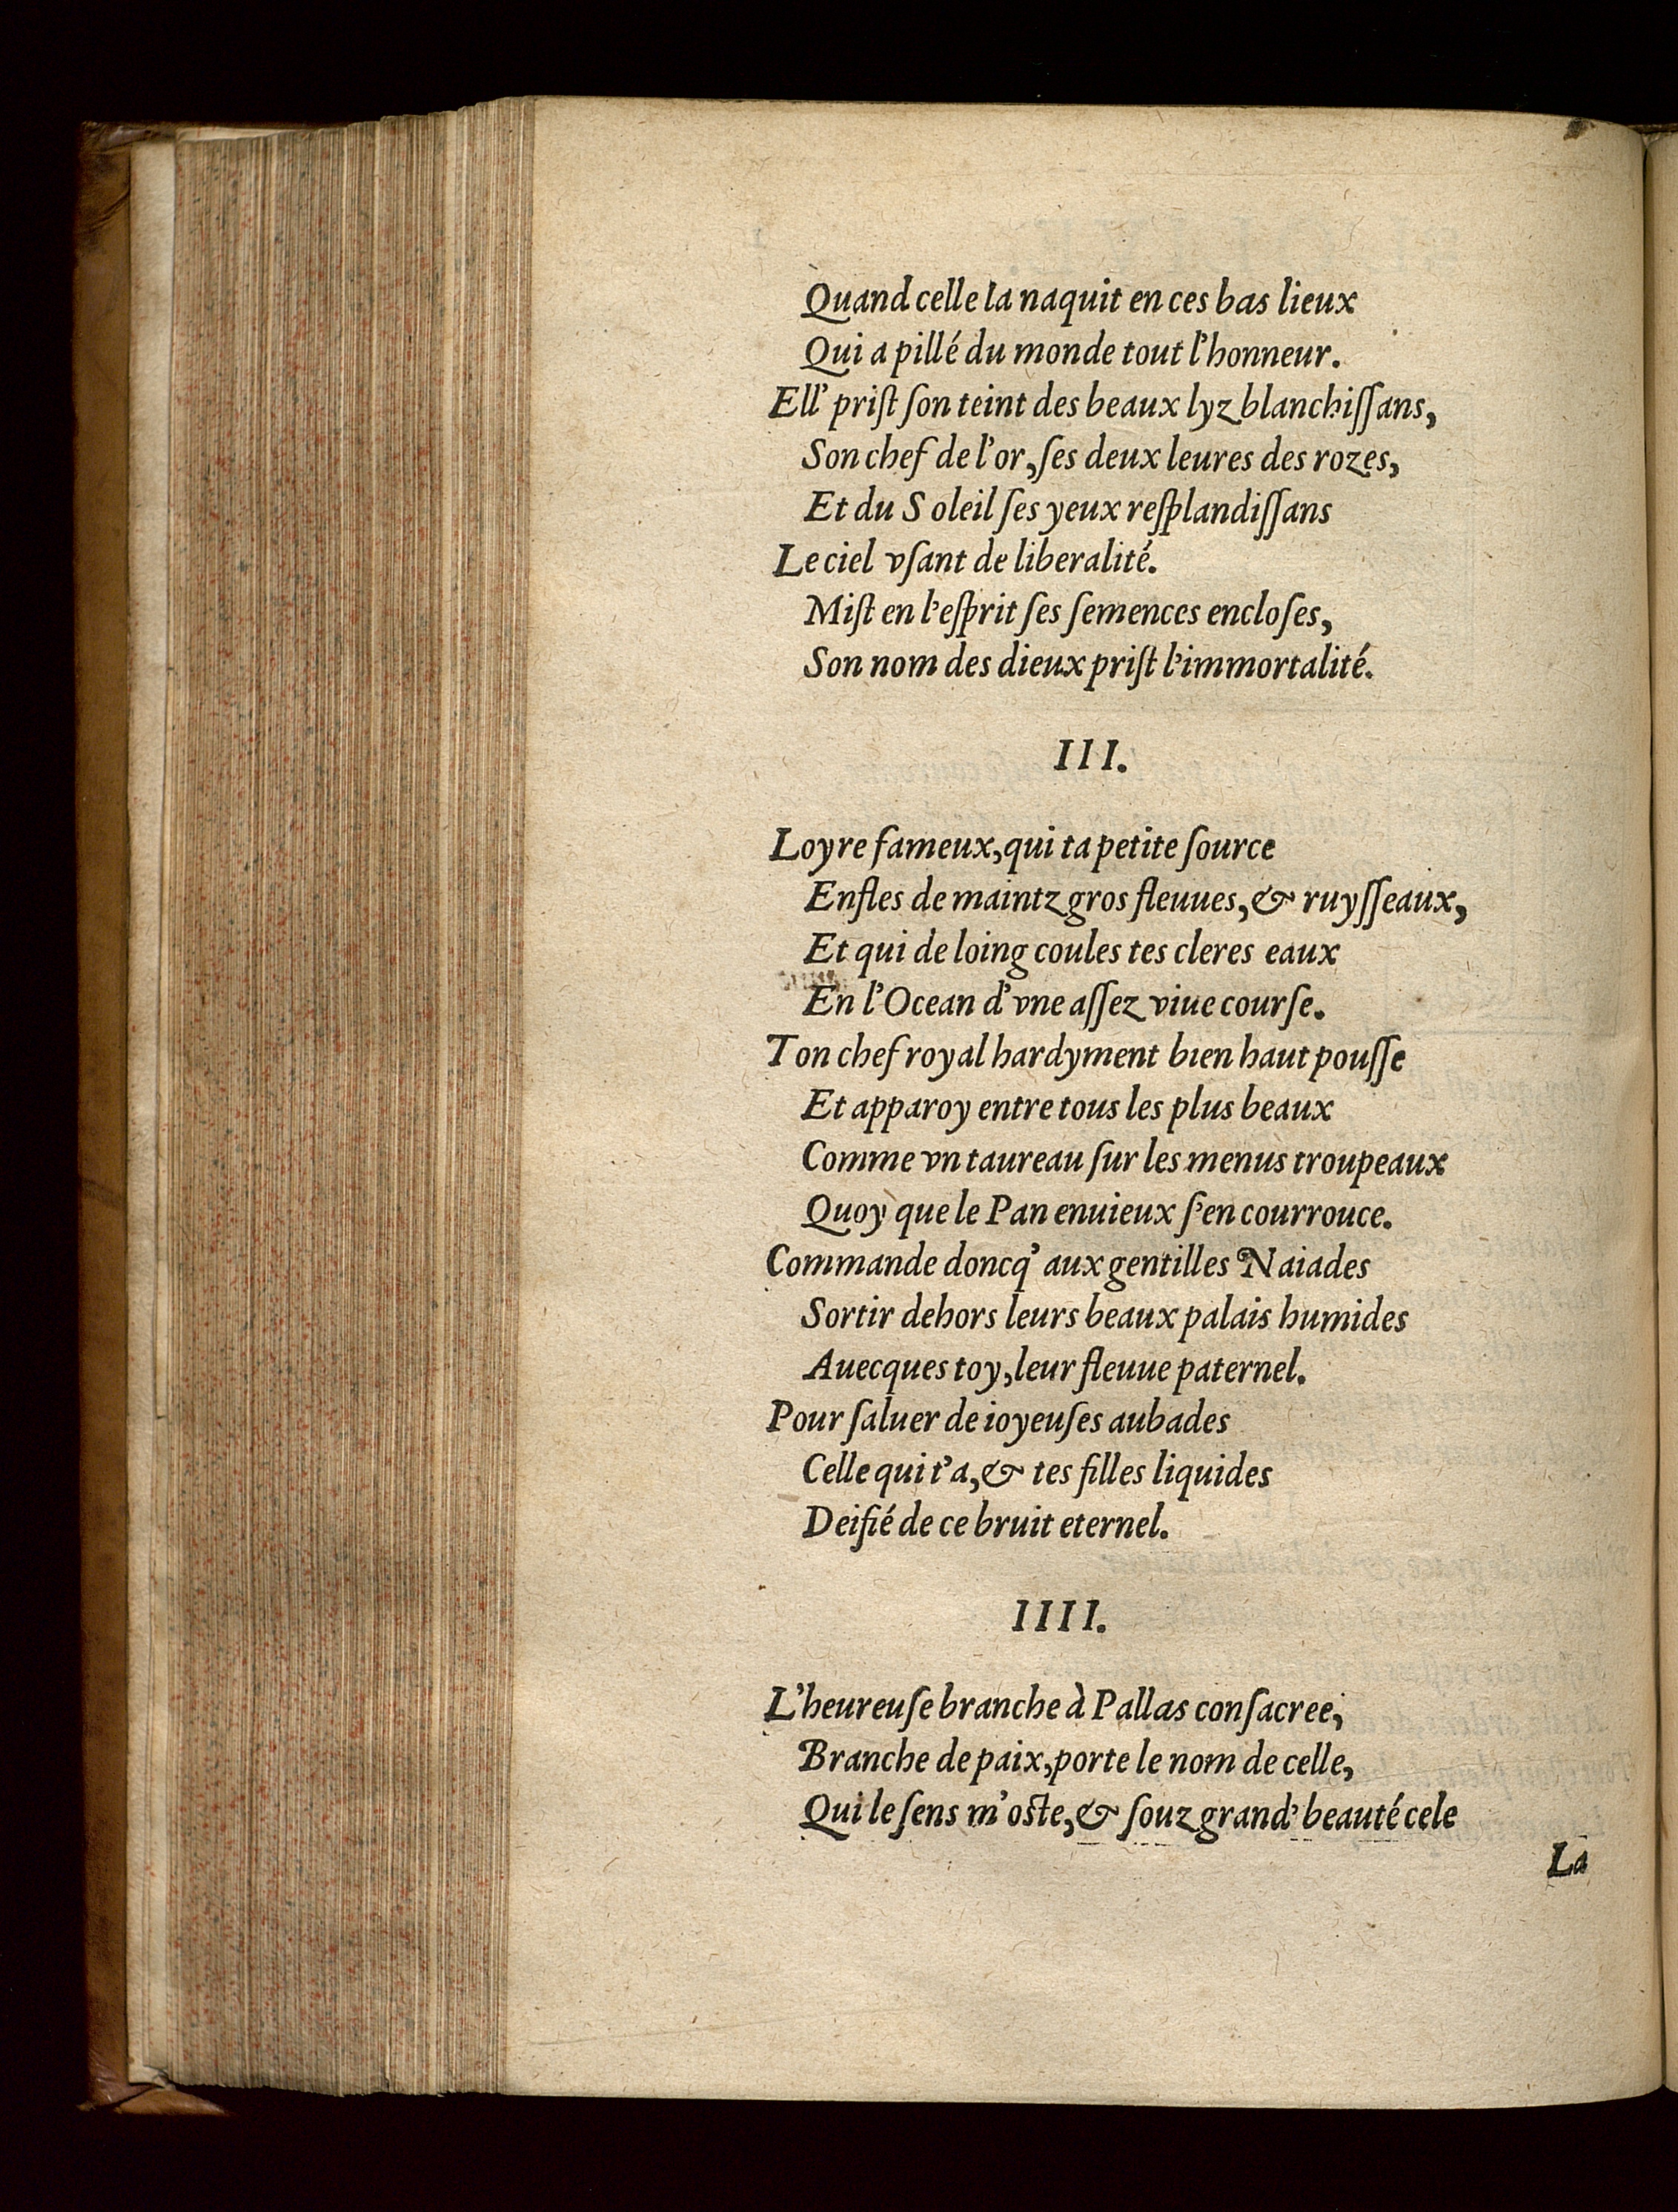 Quand celle la naquit en ces bas lieux
Qui a pillé du monde tout l'honneur.
Ell' priſt ſon teint des beaux lyz blanchiſſans,
Son chef de l'or, ſes deux leures des rozes,
Et du Soleil ſes yeux reſplandiſſans
Le ciel vſant de liberalité.
Miſt en l'eſprit ſes ſemences encloſes,
Son nom des dieux priſt l'immortalité.
III.
Loyre fameux, qui ta petite ſource
Enfles de maintz gros fleuues, & ruyſſeaux,
Et qui de loing coules tes cleres eaux
En l'Ocean d'vne aſſez viue courſe.
Ton chef royal hardyment bien haut pouſſe
Et apparoy entre tous les plus beaux
Comme vn taureau ſur les menus troupeaux
Quoy que le Pan enuieux ſ'en courrouce.
Commande doncq' aux gentilles Naiades
Sortir dehors leurs beaux palais humides
Auecques toy, leur fleuue paternel.
Pour ſaluer de ioyeuſes aubades
Celle qui t'a, & tes filles liquides
Deifié de ce bruit eternel.
IIII.
L'heureuſe branche à Pallas conſacree,
Branche de paix, porte le nom de celle,
Qui le ſens m'oſte, & ſouz grand' beauté cele
La